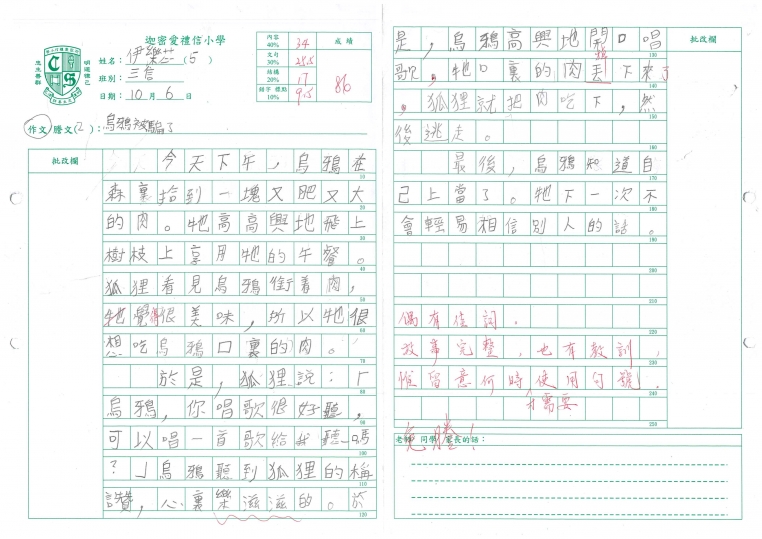 迦密愛禮信小學
明道律己
忠主善群
姓名：伊樂芯(5)
班別：三信
日期：10月6日
內容 40% 34
文句 30% 25.5
結構 20% 17
錯字 標點 10% 9.5
成績
86
作文/謄文(2)：烏鴉被騙了
批改欄
今天下午，烏鴉在
森裏拾到一塊又肥又大
的肉。牠高高興地飛上
樹枝上享用牠的午餐。
狐狸看見烏鴉銜着肉，
牠覺得很美味，所以牠很
想吃烏鴉口裏的肉。
於是，狐狸說：「
烏鴉，你唱歌很好聽，
可以唱一首歌給我聽嗎
？」烏鴉聽到狐狸的稱
讚，心裏樂滋滋的。於
批改欄
是，烏鴉高興地開口唱
歌，牠口裏的肉丟下來了
掉
，狐狸就把肉吃下，然
後逃走。
最後，烏鴉知道自
己上當了。牠下一次不
會輕易相信別人的話。
偶有佳詞。
故事完整，也有教訓，
惟留意何時使用句號。
才需要
老師 同學 家長的話：
免謄！
10
20
30
40
50
60
70
80
90
100
110
120
130
140
150
160
170
180
190
200
210
220
230
240
250